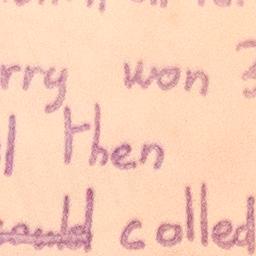 rry won 3
l then
could colled